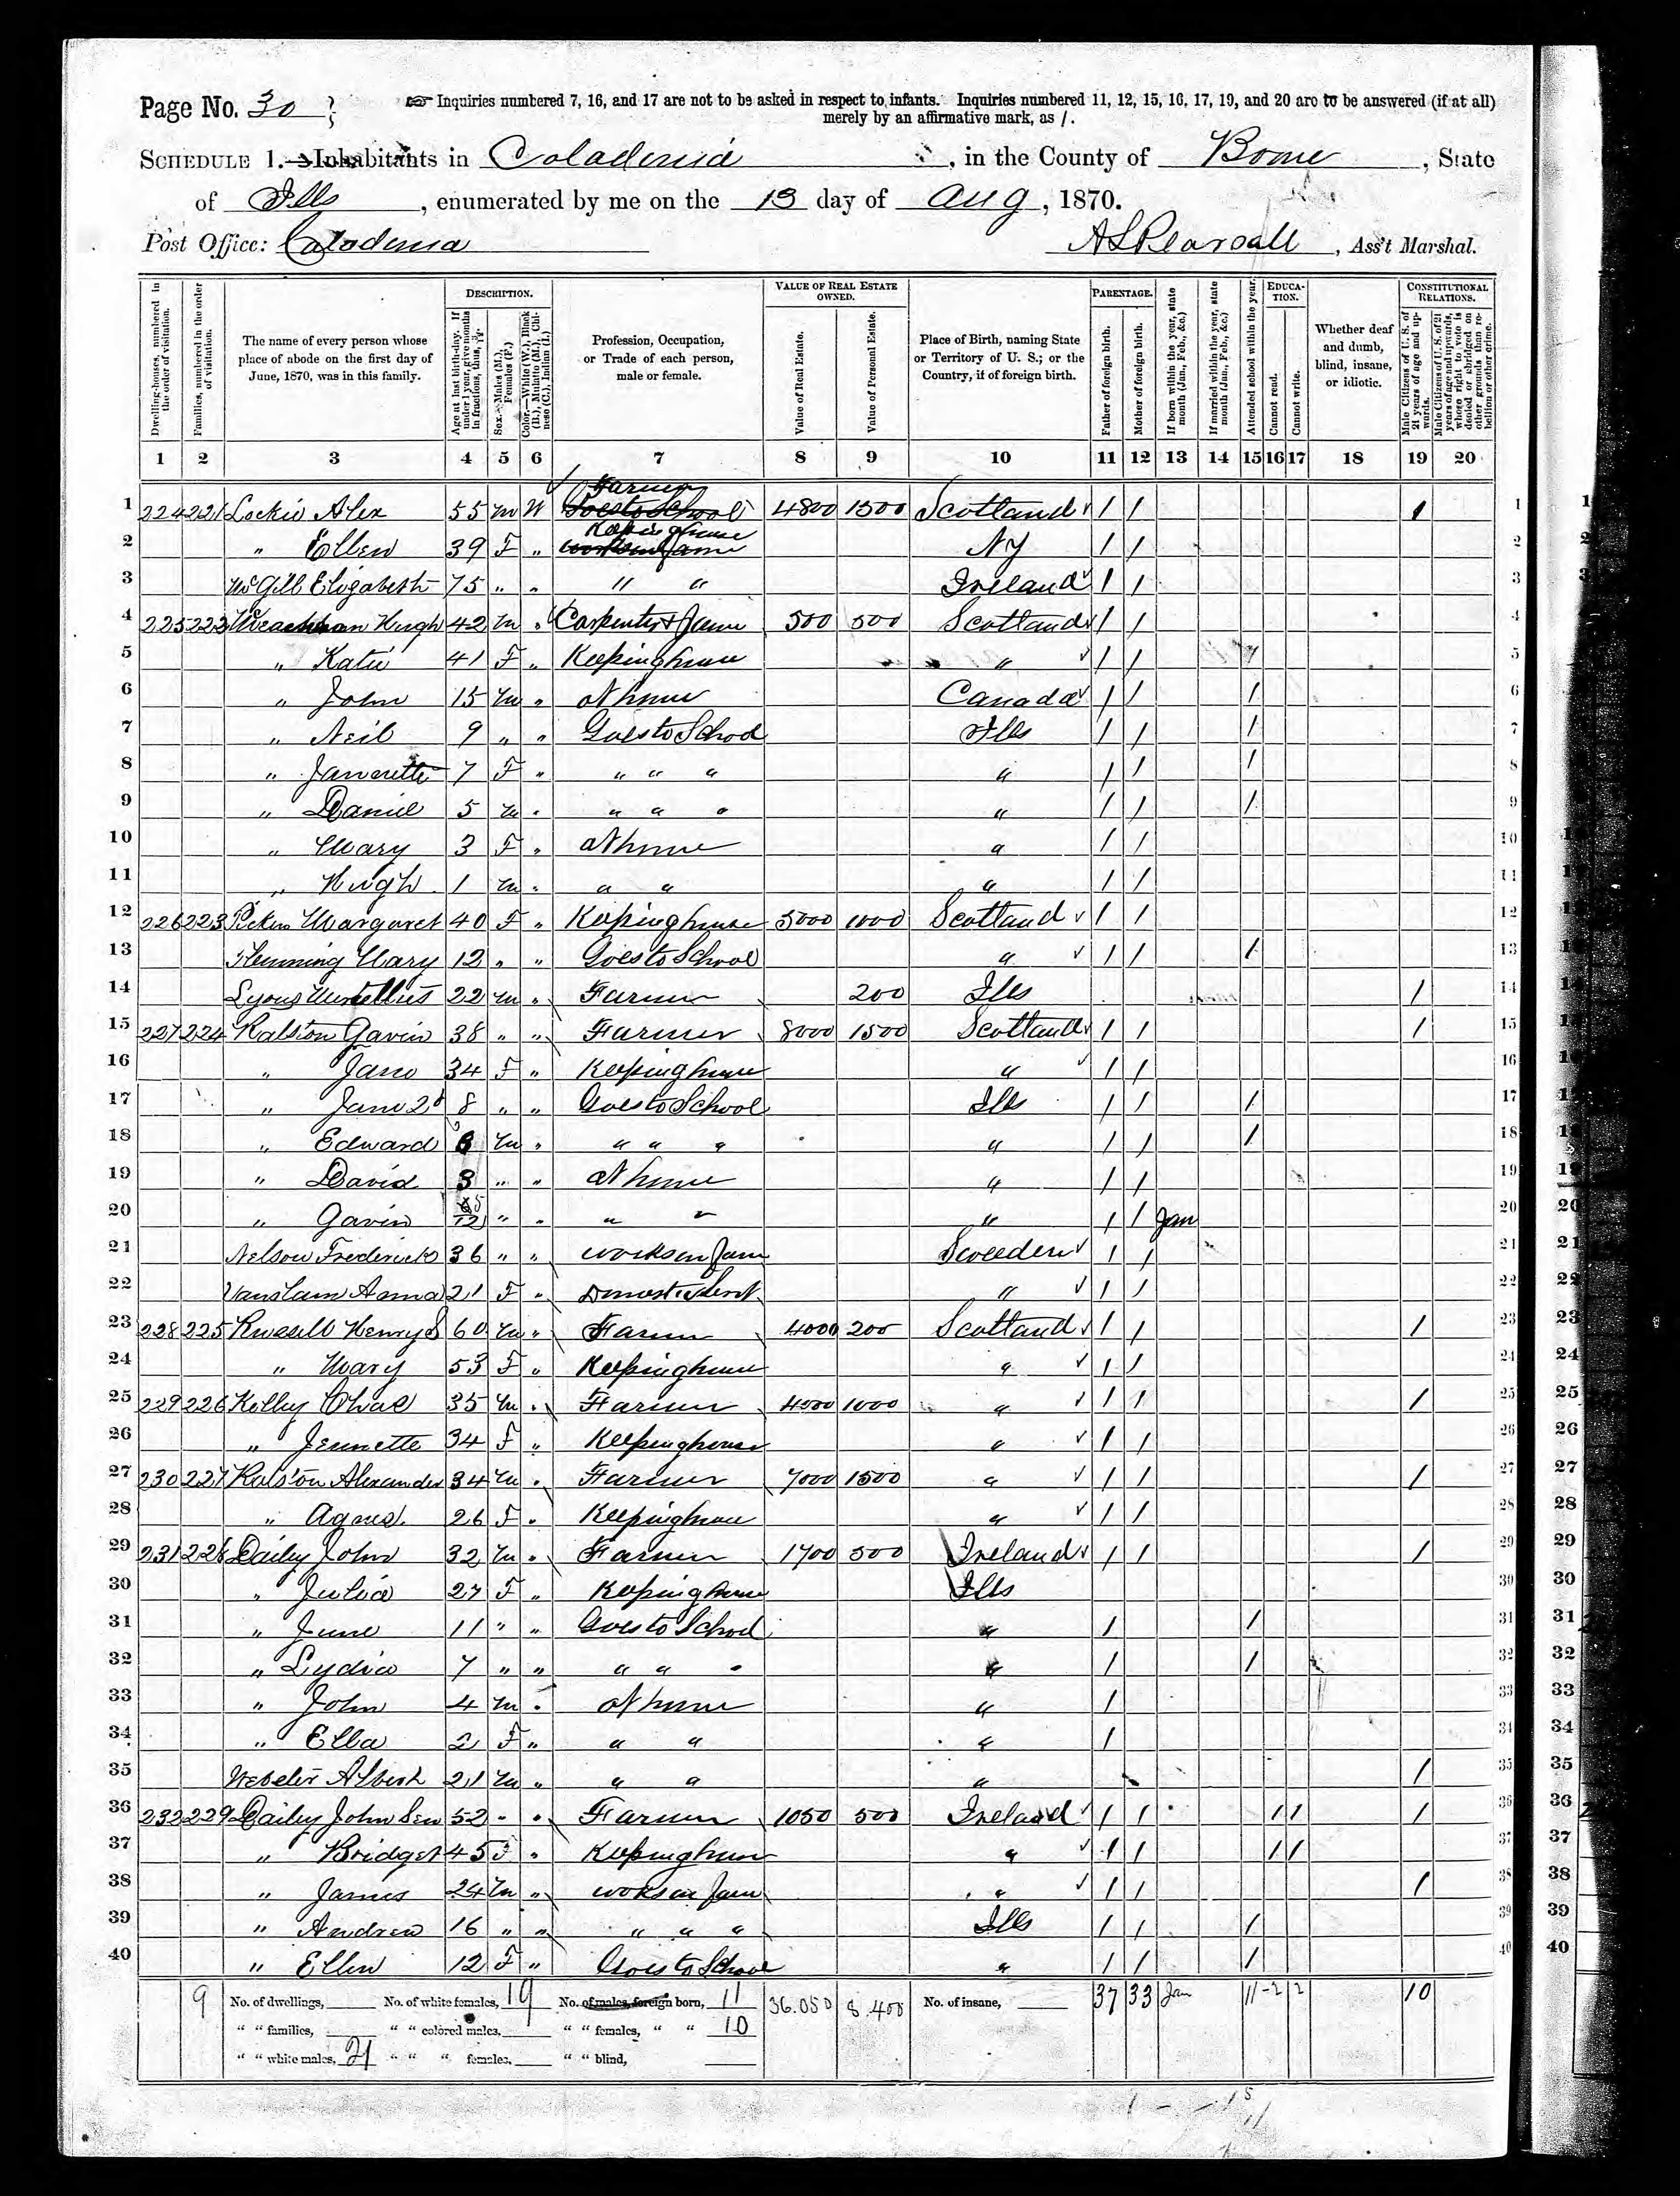 Page No. 30
☞ Inquiries numbered 7, 16, and 17 are not to be asked in respect to infants. Inquiries numbered 11, 12, 15, 16, 17, 19, and 20 are to be answered (if at all)
merely by an affirmative mark, as /.
SCHEDULE 1.—Inhabitants in Caladonia, in the County of Boone, State
of Ills, enumerated by me on the 13 day of Aug, 1870.
Post Office: Caladonia A S Pearsall, Ass't Marshal.
Dwelling-houses, numbered in the order of visitation.
Families, numbered in the order of visitation.
The name of every person whose place of abode on the first day of June, 1870, was in this family.
DESCRIPTION.
Age at last birth-day. If under 1 year, give months in fractions, thus, 3/12.
Sex.—Males (M.), Females (F.)
Color.—White (W.), Black (B.), Mulatto (M.), Chinese (C.), Indian (I.)
Profession, Occupation, or Trade of each person, male or female.
VALUE OF REAL ESTATE OWNED.
Value of Real Estate.
Value of Personal Estate.
Place of Birth, naming State or Territory of U. S.; or the Country, if of foreign birth.
PARENTAGE.
Father of foreign birth.
Mother of foreign birth.
If born within the year, state month (Jan., Feb., &c.)
If married within the year, state month (Jan., Feb., &c.)
Attended school within the year.
EDUCATION.
Cannot read.
Cannot write.
Whether deaf and dumb, blind, insane, or idiotic.
CONSTITUTIONAL RELATIONS.
Male Citizens of U. S. of 21 years of age and upwards.
Male Citizens of U. S. of 21 years of age and upwards, whose right to vote is denied or abridged on other grounds than rebellion or other crime.
1 2 3 4 5 6 7 8 9 10 11 12 13 14 15 16 17 18 19 20
1 224 221 Lockie Alex 55 M W Farmer 4800 1500 Scotland / / / 1
2 " Ellen 39 F " Keping house NY / / 2
3 McGill Elizabeth 75 " " " " Ireland / / 3
4 225 222 Hugh 42 M " Carpenter & Farm 500 500 Scotland / / 4
5 " Katie 41 F " Keepinghouse " / / / 5
6 " John 15 M " At home Canada / / / 6
7 " Neil 9 " " Goes to School Ills / / / 7
8 " Jannette 7 F " " " " " / / / 8
9 " Daniel 5 M " " " " " / / / 9
10 " Mary 3 F " At home " / / 10
11 " Hugh 1 M " " " " / / 11
12 226 223 Margaret 40 F " Keepinghouse 5000 1000 Scotland / / 12
13 Flemming Mary 12 " " Goes to School " / / / 13
14 Lyons 22 M " Farmer 200 Ills / 14
15 227 224 Ralston Gavin 38 " " Farmer 8000 1500 Scotland / / / 15
16 " Jane 34 F " Keepinghouse " / / 16
17 " Jane 2d 8 " " Goes to School Ills / / / 17
18 " Edward 6 M " " " " " / / / 18
19 " David 3 " " At home " / / 19
20 " Gavin 5/12 " " " " " / / Jan 20
21 Nelson Frederick 36 " " works on farm Sweeden / / 21
22 Anna 21 F " Domestic Servt " / / 22
23 228 225 Russell Henry S 60 M " Farmer 4000 200 Scotland / / / 23
24 " Mary 53 F " Keepinghouse " / / 24
25 229 226 Kelley Chas 35 M " Farmer 4000 1000 " / / / 25
26 " Jennette 34 F " Keepinghouse " / / 26
27 230 227 Ralston Alexander 34 M " Farmer 7000 1500 " / / / 27
28 " Agnes 26 F " Keepinghouse " / / 28
29 231 228 Dailey John 32 M " Farmer 1700 500 Ireland / / / 29
30 " Julia 27 F " Keepinghouse Ills 30
31 " June 11 " " Goes to School " / / 31
32 " Lydia 7 " " " " " " / / 32
33 " John 4 M " At home " / 33
34 " Ella 2 F " " " " / 34
35 Webster Albert 21 M " " " " / 35
36 232 229 Dailey John Sen 52 " " Farmer 1050 500 Ireland / / / / / 36
37 " Bridget 45 F " Keepinghouse " / / / / 37
38 " James 24 M " works on farm " / / / 38
39 " Andrew 16 " " " " " Ills / / / 39
40 " Ellen 12 F " Goes to School " / / / 40
9 No. of dwellings, No. of white females, 19 No. of males, foreign born, 11 36.050 8.400 No. of insane, 37 33 Jan 11 2 2 10
" " families, " " colored males, " " females, " " 10
" " white males, 21 " " " females, " " blind,